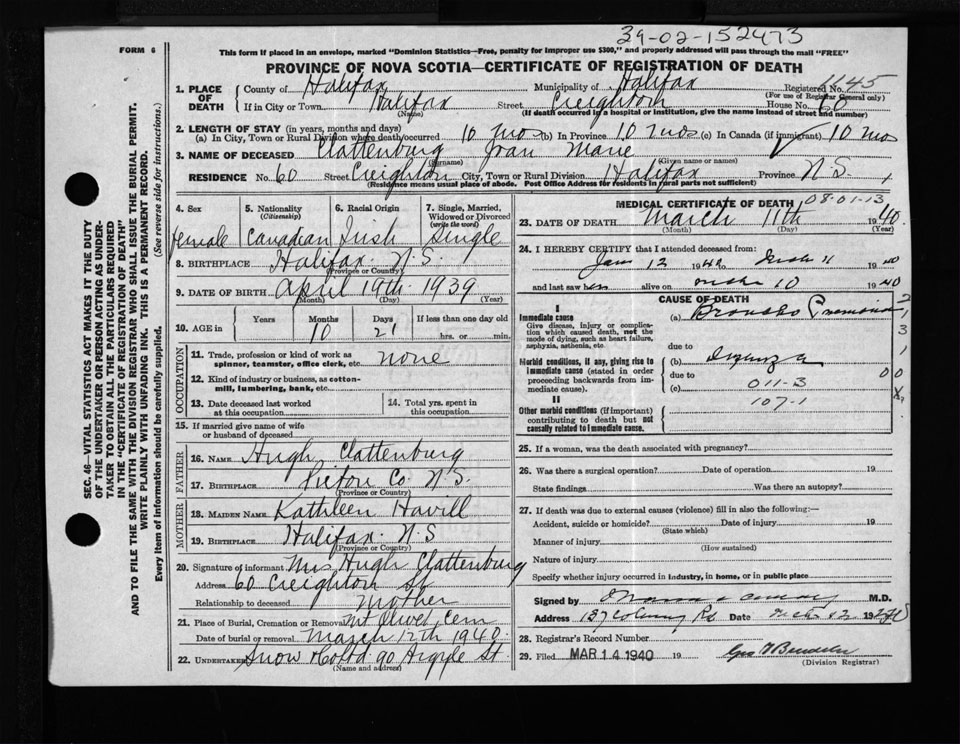 39-02-152473
FORM 6
This form if placed in an envelope, marked "Dominion Statistics—Free, penalty for improper use $300," and properly addressed will pass through the mail "FREE"
PROVINCE OF NOVA SCOTIA—CERTIFICATE OF REGISTRATION OF DEATH
1. PLACE OF DEATH County of Halifax Municipality of Halifax Registered No. 1145
(For use of Registrar General only)
If in City or Town Halifax Street Creighton House No. 60
(Name) (If death occurred in a hospital or institution, give the name instead of street and number)
2. LENGTH OF STAY (in years, months and days)
(a) In City, Town or Rural Division where death occurred 10 mos (b) In Province 10 mos (c) In Canada (if immigrant) 10 mos
3. NAME OF DECEASED Clattenburg Joan Marie
(Surname) (Given name or names)
RESIDENCE No. 60 Street Creighton City, Town or Rural Division Halifax Province N.S.
(Residence means usual place of abode. Post Office Address for residents in rural parts not sufficient)
4. Sex 5. Nationality (Citizenship) 6. Racial Origin 7. Single, Married, Widowed or Divorced (write the word)
female Canadian Irish Single
8. BIRTHPLACE Halifax N.S.
(Province or Country)
9. DATE OF BIRTH April 19th 1939
(Month) (Day) (Year)
10. AGE in Years Months Days If less than one day old
10 21 hrs. or min.
OCCUPATION
11. Trade, profession or kind of work as spinner, teamster, office clerk, etc. none
12. Kind of industry or business, as cotton-mill, lumbering, bank, etc.
13. Date deceased last worked at this occupation
14. Total yrs. spent in this occupation
15. If married give name of wife or husband of deceased
FATHER
16. NAME Hugh Clattenburg
17. BIRTHPLACE Pictou Co. N.S.
(Province or Country)
MOTHER
18. MAIDEN NAME Kathleen Havill
19. BIRTHPLACE Halifax N.S
(Province or Country)
20. Signature of informant Mrs Hugh Clattenburg
Address 60 Creighton St
Relationship to deceased Mother
21. Place of Burial, Cremation or Removal Mt Olivet Cem
Date of burial or removal March 12th 1940
22. UNDERTAKER Snow & Co Ltd 90 Argyle St.
(Name and address)
MEDICAL CERTIFICATE OF DEATH 08-01-13
23. DATE OF DEATH March 11th 1940
(Month) (Day) (Year)
24. I HEREBY CERTIFY that I attended deceased from:
Jan 12 1940 to March 11 1940
and last saw her alive on March 10 1940
CAUSE OF DEATH
I
Immediate cause
Give disease, injury or complication which caused death, not the mode of dying, such as heart failure, asphyxia, asthenia, etc.
(a) Broncho Pneumonia
due to
Morbid conditions, if any, giving rise to immediate cause (stated in order proceeding backwards from immediate cause).
(b) Influenza
due to
(c) 011-3
107-1
II
Other morbid conditions (if important) contributing to death but not causally related to immediate cause.
25. If a woman, was the death associated with pregnancy?
26. Was there a surgical operation? Date of operation 19
State findings Was there an autopsy?
27. If death was due to external causes (violence) fill in also the following:—
Accident, suicide or homicide? Date of injury 19
(State which)
Manner of injury
(How sustained)
Nature of injury
Specify whether injury occurred in industry, in home, or in public place
Signed by M.D.
Address Rd Date 12 19
28. Registrar's Record Number
29. Filed MAR 14 1940 19
(Division Registrar)
SEC. 46—VITAL STATISTICS ACT MAKES IT THE DUTY
OF THE UNDERTAKER OR PERSON ACTING AS UNDERTAKER TO OBTAIN ALL THE PARTICULARS REQUIRED
IN THE "CERTIFICATE OF REGISTRATION OF DEATH"
AND TO FILE THE SAME WITH THE DIVISION REGISTRAR WHO SHALL ISSUE THE BURIAL PERMIT.
WRITE PLAINLY WITH UNFADING INK. THIS IS A PERMANENT RECORD.
Every item of information should be carefully supplied. (See reverse side for instructions.)